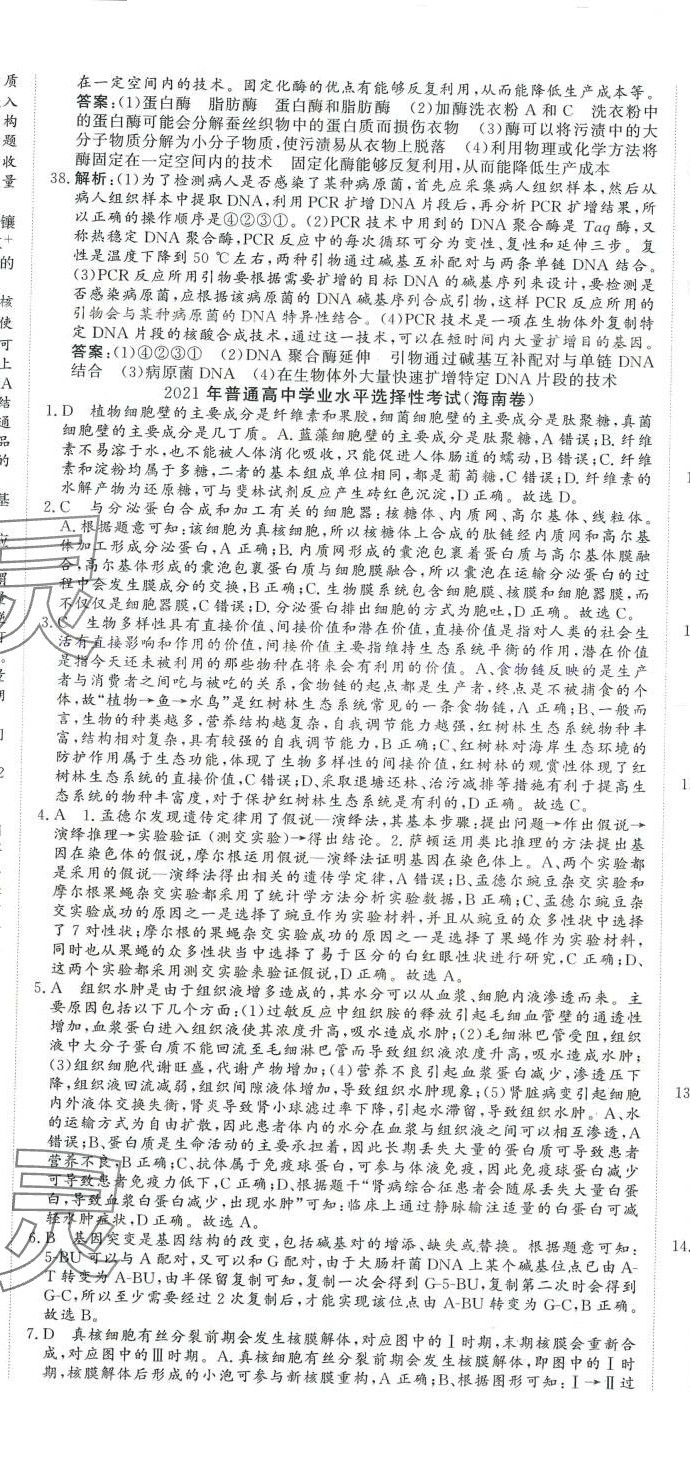 在一定空间内的技术。固定化酶的优点有能够反复利用,从而能降低生产成本等。
答案:(1)蛋白酶 脂肪酶 蛋白酶和脂肪酶 (2)加酶洗衣粉 A 和 C 洗衣粉中
的蛋白酶可能会分解蚕丝织物中的蛋白质而损伤衣物 (3)酶可以将污渍中的大
分子物质分解为小分子物质,使污渍易从衣物上脱落 (4)利用物理或化学方法将
酶固定在一定空间内的技术 固定化酶能够反复利用,从而能降低生产成本
38. 解析:(1)为了检测病人是否感染了某种病原菌,首先应采集病人组织样本,然后从
病人组织样本中提取 DNA,利用 PCR 扩增 DNA 片段后,再分析 PCR 扩增结果,所
以正确的操作顺序是④②③①。(2)PCR 技术中用到的 DNA 聚合酶是 Taq 酶,又
称热稳定 DNA 聚合酶,PCR 反应中的每次循环可分为变性、复性和延伸三步。复
性是温度下降到 50 ℃左右,两种引物通过碱基互补配对与两条单链 DNA 结合。
(3)PCR 反应所用引物要根据需要扩增的目标 DNA 的碱基序列来设计,要检测是
否感染病原菌,应根据该病原菌的 DNA 碱基序列合成引物,这样 PCR 反应所用的
引物会与某种病原菌的 DNA 特异性结合。(4)PCR 技术是一项在生物体外复制特
定 DNA 片段的核酸合成技术,通过这一技术,可以在短时间内大量扩增目的基因。
答案:(1)④②③① (2)DNA 聚合酶延伸 引物通过碱基互补配对与单链 DNA
结合 (3)病原菌 DNA (4)在生物体外大量快速扩增特定 DNA 片段的技术
2021 年普通高中学业水平选择性考试(海南卷)
1. D 植物细胞壁的主要成分是纤维素和果胶,细菌细胞壁的主要成分是肽聚糖,真菌
细胞壁的主要成分是几丁质。A. 蓝藻细胞壁的主要成分是肽聚糖,A 错误;B. 纤维
素不易溶于水,也不能被人体消化吸收,只能促进人体肠道的蠕动,B 错误;C. 纤维
素和淀粉均属于多糖,二者的基本组成单位相同,都是葡萄糖,C 错误;D. 纤维素的
水解产物为还原糖,可与斐林试剂反应产生砖红色沉淀,D 正确。故选 D。
2. C 与分泌蛋白合成和加工有关的细胞器:核糖体、内质网、高尔基体、线粒体。
A. 根据题意可知:该细胞为真核细胞,所以核糖体上合成的肽链经内质网和高尔基
体加工形成分泌蛋白,A 正确;B. 内质网形成的囊泡包裹着蛋白质与高尔基体膜融
合,高尔基体形成的囊泡包裹蛋白质与细胞膜融合,所以囊泡在运输分泌蛋白的过
程中会发生膜成分的交换,B 正确;C. 生物膜系统包含细胞膜、核膜和细胞器膜,而
不仅仅是细胞器膜,C 错误;D. 分泌蛋白排出细胞的方式为胞吐,D 正确。故选 C。
3. C 生物多样性具有直接价值、间接价值和潜在价值,直接价值是指对人类的社会生
活有直接影响和作用的价值,间接价值主要指维持生态系统平衡的作用,潜在价值
是指今天还未被利用的那些物种在将来会有利用的价值。A、食物链反映的是生产
者与消费者之间吃与被吃的关系,食物链的起点都是生产者,终点是不被捕食的个
体,故“植物→鱼→水鸟”是红树林生态系统常见的一条食物链,A 正确;B、一般而
言,生物的种类越多,营养结构越复杂,自我调节能力越强,红树林生态系统物种丰
富,结构相对复杂,具有较强的自我调节能力,B 正确;C、红树林对海岸生态环境的
防护作用属于生态功能,体现了生物多样性的间接价值,红树林的观赏性体现了红
树林生态系统的直接价值,C 错误;D、采取退塘还林、治污减排等措施有利于提高生
态系统的物种丰富度,对于保护红树林生态系统是有利的,D 正确。故选 C。
4. A 1. 孟德尔发现遗传定律用了假说—演绎法,其基本步骤:提出问题→作出假说→
演绎推理→实验验证(测交实验)→得出结论。2. 萨顿运用类比推理的方法提出基
因在染色体的假说,摩尔根运用假说—演绎法证明基因在染色体上。A、两个实验都
是采用的假说—演绎法得出相关的遗传学定律,A 错误;B、孟德尔豌豆杂交实验和
摩尔根果蝇杂交实验都采用了统计学方法分析实验数据,B 正确;C、孟德尔豌豆杂
交实验成功的原因之一是选择了豌豆作为实验材料,并且从豌豆的众多性状中选择
了 7 对性状;摩尔根的果蝇杂交实验成功的原因之一是选择了果蝇作为实验材料,
同时也从果蝇的众多性状当中选择了易于区分的白红眼性状进行研究,C 正确;D、
这两个实验都采用测交实验来验证假说,D 正确。故选 A。
5. A 组织水肿是由于组织液增多造成的,其水分可以从血浆、细胞内液渗透而来。主
要原因包括以下几个方面:(1)过敏反应中组织胺的释放引起毛细血管壁的通透性
增加,血浆蛋白进入组织液使其浓度升高,吸水造成水肿;(2)毛细淋巴管受阻,组织
液中大分子蛋白质不能回流至毛细淋巴管而导致组织液浓度升高,吸水造成水肿;
(3)组织细胞代谢旺盛,代谢产物增加;(4)营养不良引起血浆蛋白减少,渗透压下
降,组织液回流减弱,组织间隙液体增加,导致组织水肿现象;(5)肾脏病变引起细胞
内外液体交换失衡,肾炎导致肾小球滤过率下降,引起水滞留,导致水肿。A、水
的运输方式为自由扩散,因此患者体内的水分在血浆与组织液之间可以相互渗透,A
错误;B、蛋白质是生命活动的主要承担着,因此长期丢失大量的蛋白质可导致患者
营养不良,B 正确;C、抗体属于免疫球蛋白,可参与体液免疫,因此免疫球蛋白减少
可导致患者免疫力低下,C 正确;D、根据题干“肾病综合征患者会随尿丢失大量白蛋
白,导致血浆白蛋白减少,出现水肿”可知:临床上通过静脉输注适量的白蛋白可减
轻水肿症状,D 正确。故选 A。
6. B 基因突变是基因结构的改变,包括碱基对的增添、缺失或替换。根据题意可知:
5-BU 可以与 A 配对,又可以和 G 配对,由于大肠杆菌 DNA 上某个碱基位点已由 A-
T 转变为 A-BU,由半保留复制可知,复制一次会得到 G-5-BU,复制第二次时会得到
G-C,所以至少需要经过 2 次复制后,才能实现该位点由 A-BU 转变为 G-C,B 正确。
故选 B。
7. D 真核细胞有丝分裂前期会发生核膜解体,对应图中的Ⅰ时期,末期核膜会重新合
成,对应图中的Ⅲ时期。A. 真核细胞有丝分裂前期会发生核膜解体,即图中的Ⅰ时
期,核膜解体后形成的小泡可参与新核膜重构,A 正确;B、根据图形可知:Ⅰ→Ⅱ过